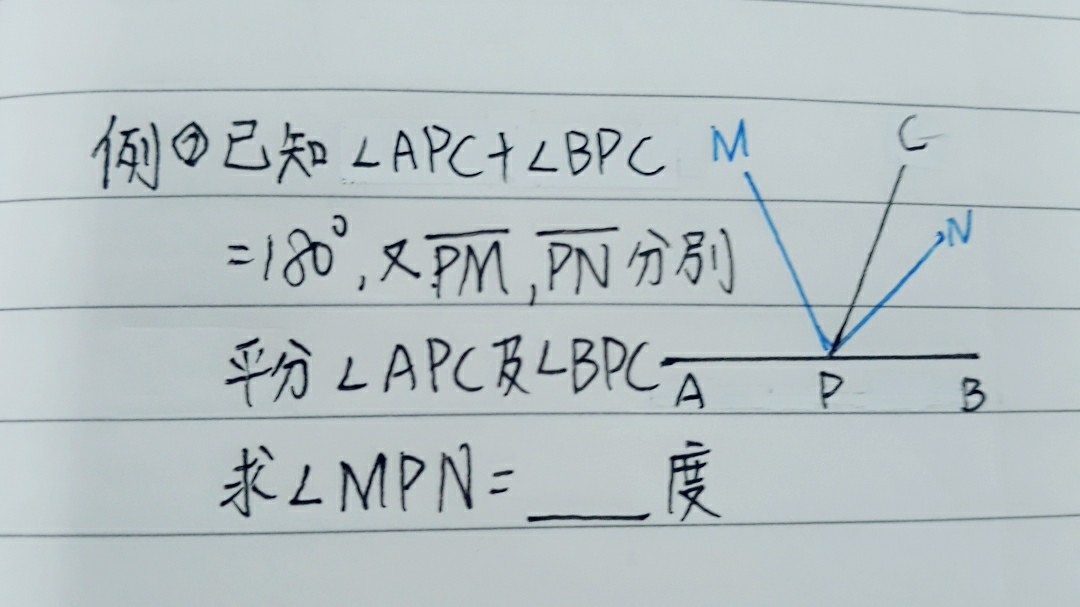 例② 已知 ∠APC+∠BPC
=180°, 又 PM, PN 分別
平分 ∠APC及∠BPC
求∠MPN=____度
M
C
N
A P B